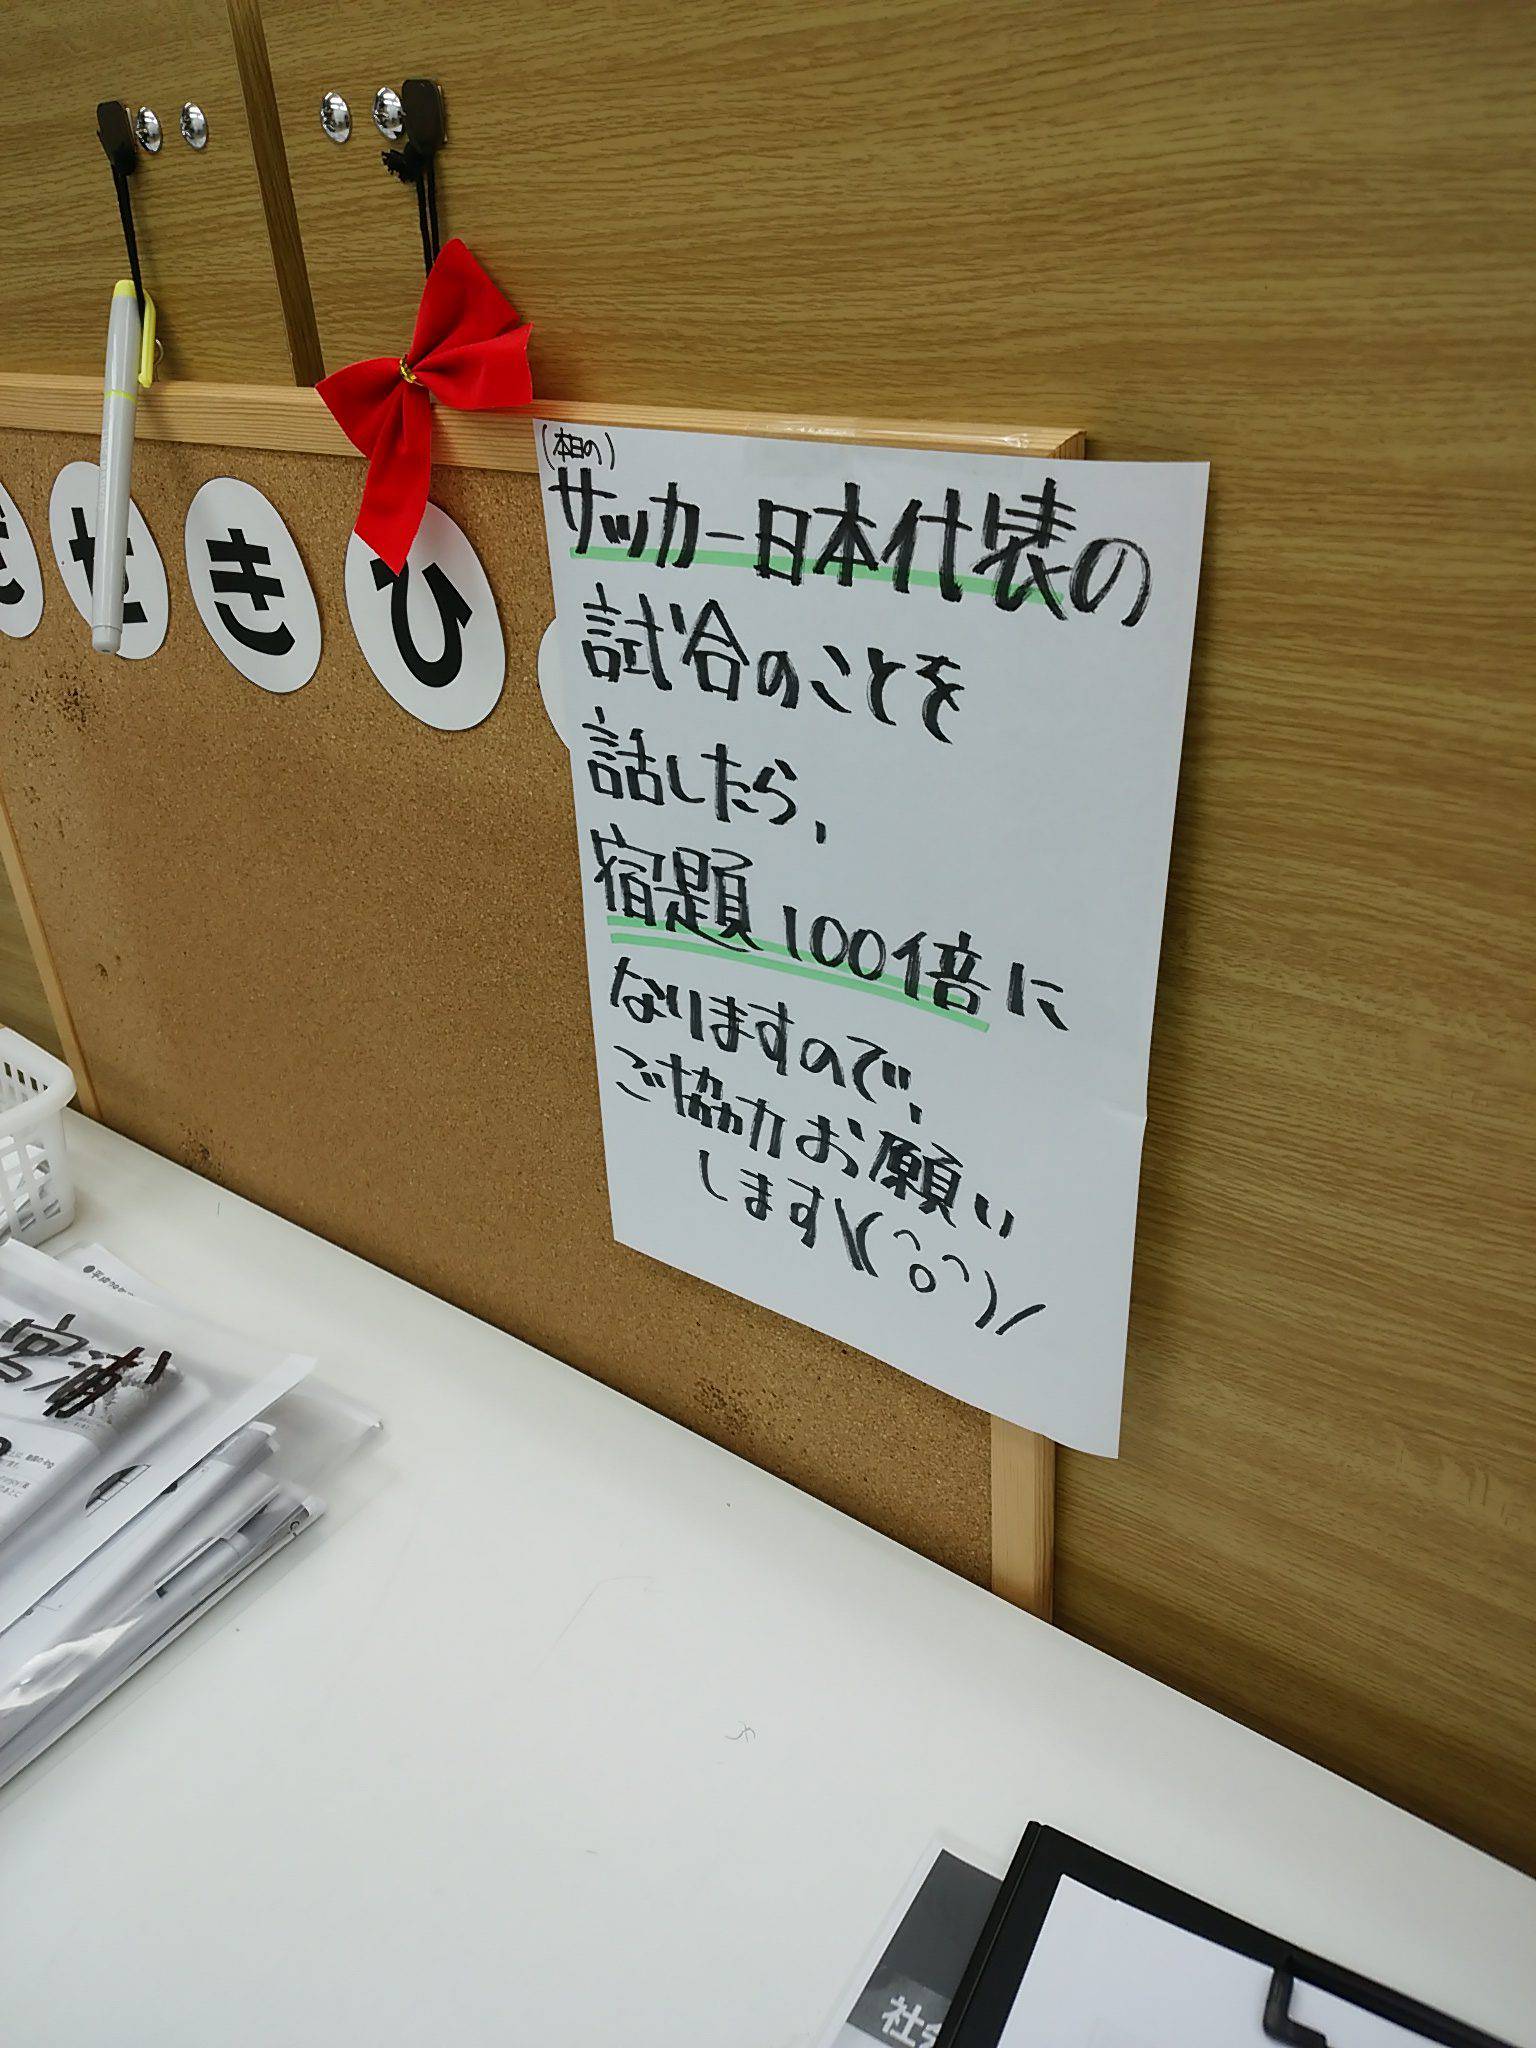 せ
き
ひ
(本日の)
サッカー日本代表の
試合のことを
話したら、
宿題100倍に
なりますので、
ご協力お願い
します\(^o^)/
宮浦
社